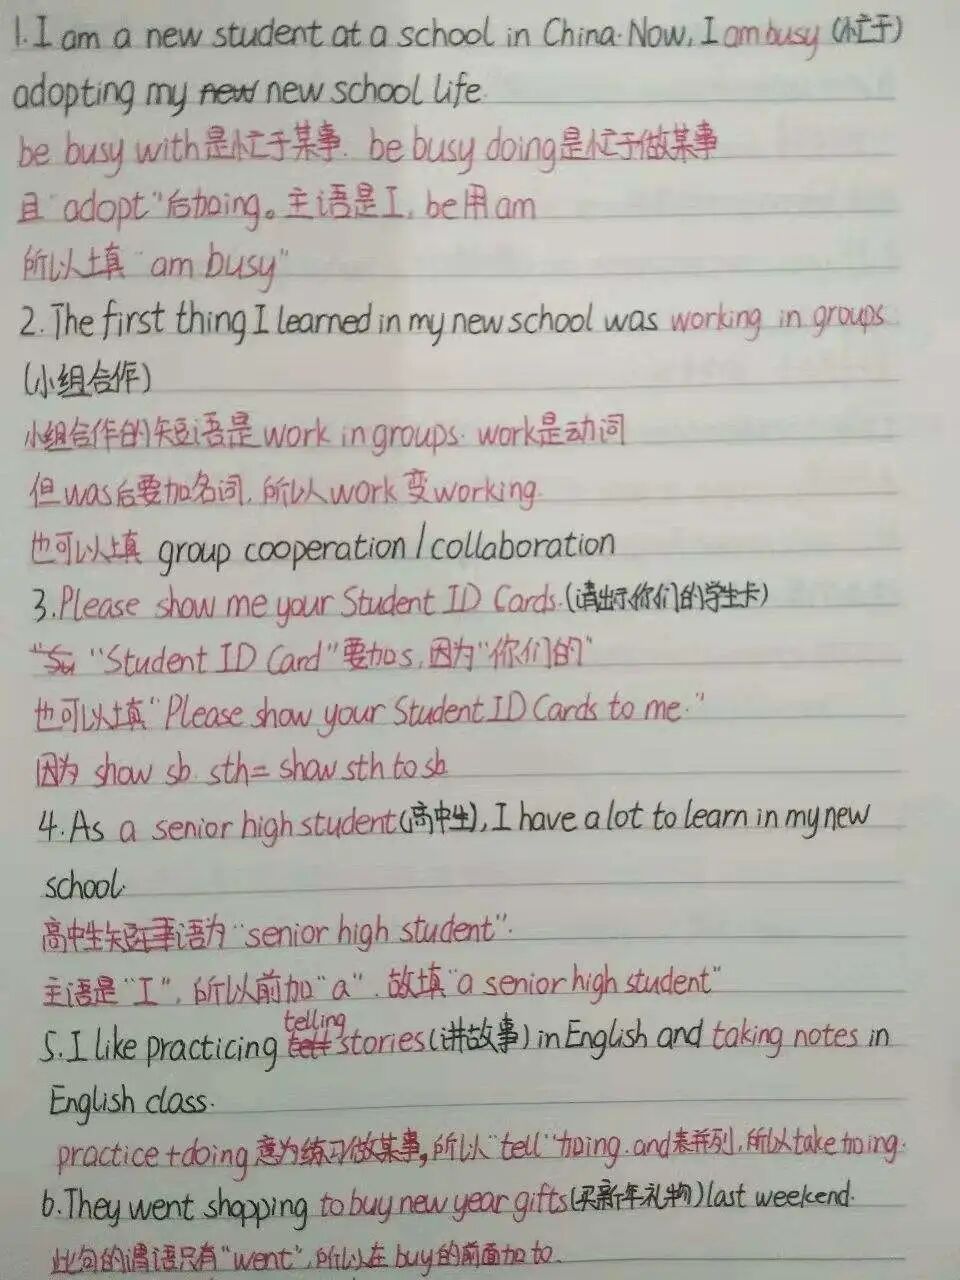 1. I am a new student at a school in China. Now, I am busy (忙于)
adopting my new new school life.
be busy with是忙于某事. be busy doing是忙于做某事
且"adopt"后加ing。主语是I, be用am
所以填"am busy"
2. The first thing I learned in my new school was working in groups
(小组合作)
小组合作的短语是work in groups. work是动词
但was后要加名词,所以work变working.
也可以填 group cooperation / collaboration
3. Please show me your Student ID Cards. (请出示你们的学生卡)
"Su "Student ID Card"要加s,因为"你们的"
也可以填"Please show your Student ID Cards to me."
因为 show sb. sth = show sth to sb
4. As a senior high student(高中生), I have a lot to learn in my new
school.
高中生短语为"senior high student".
主语是"I",所以前加"a".故填"a senior high student"
telling
5. I like practicing tell stories(讲故事) in English and taking notes in
English class.
practice+doing 意为练习做某事,所以"tell"加ing. and表并列,所以take加ing.
6. They went shopping to buy new year gifts(买新年礼物) last weekend.
此句的谓语只有"went",所以在buy的前面加to.